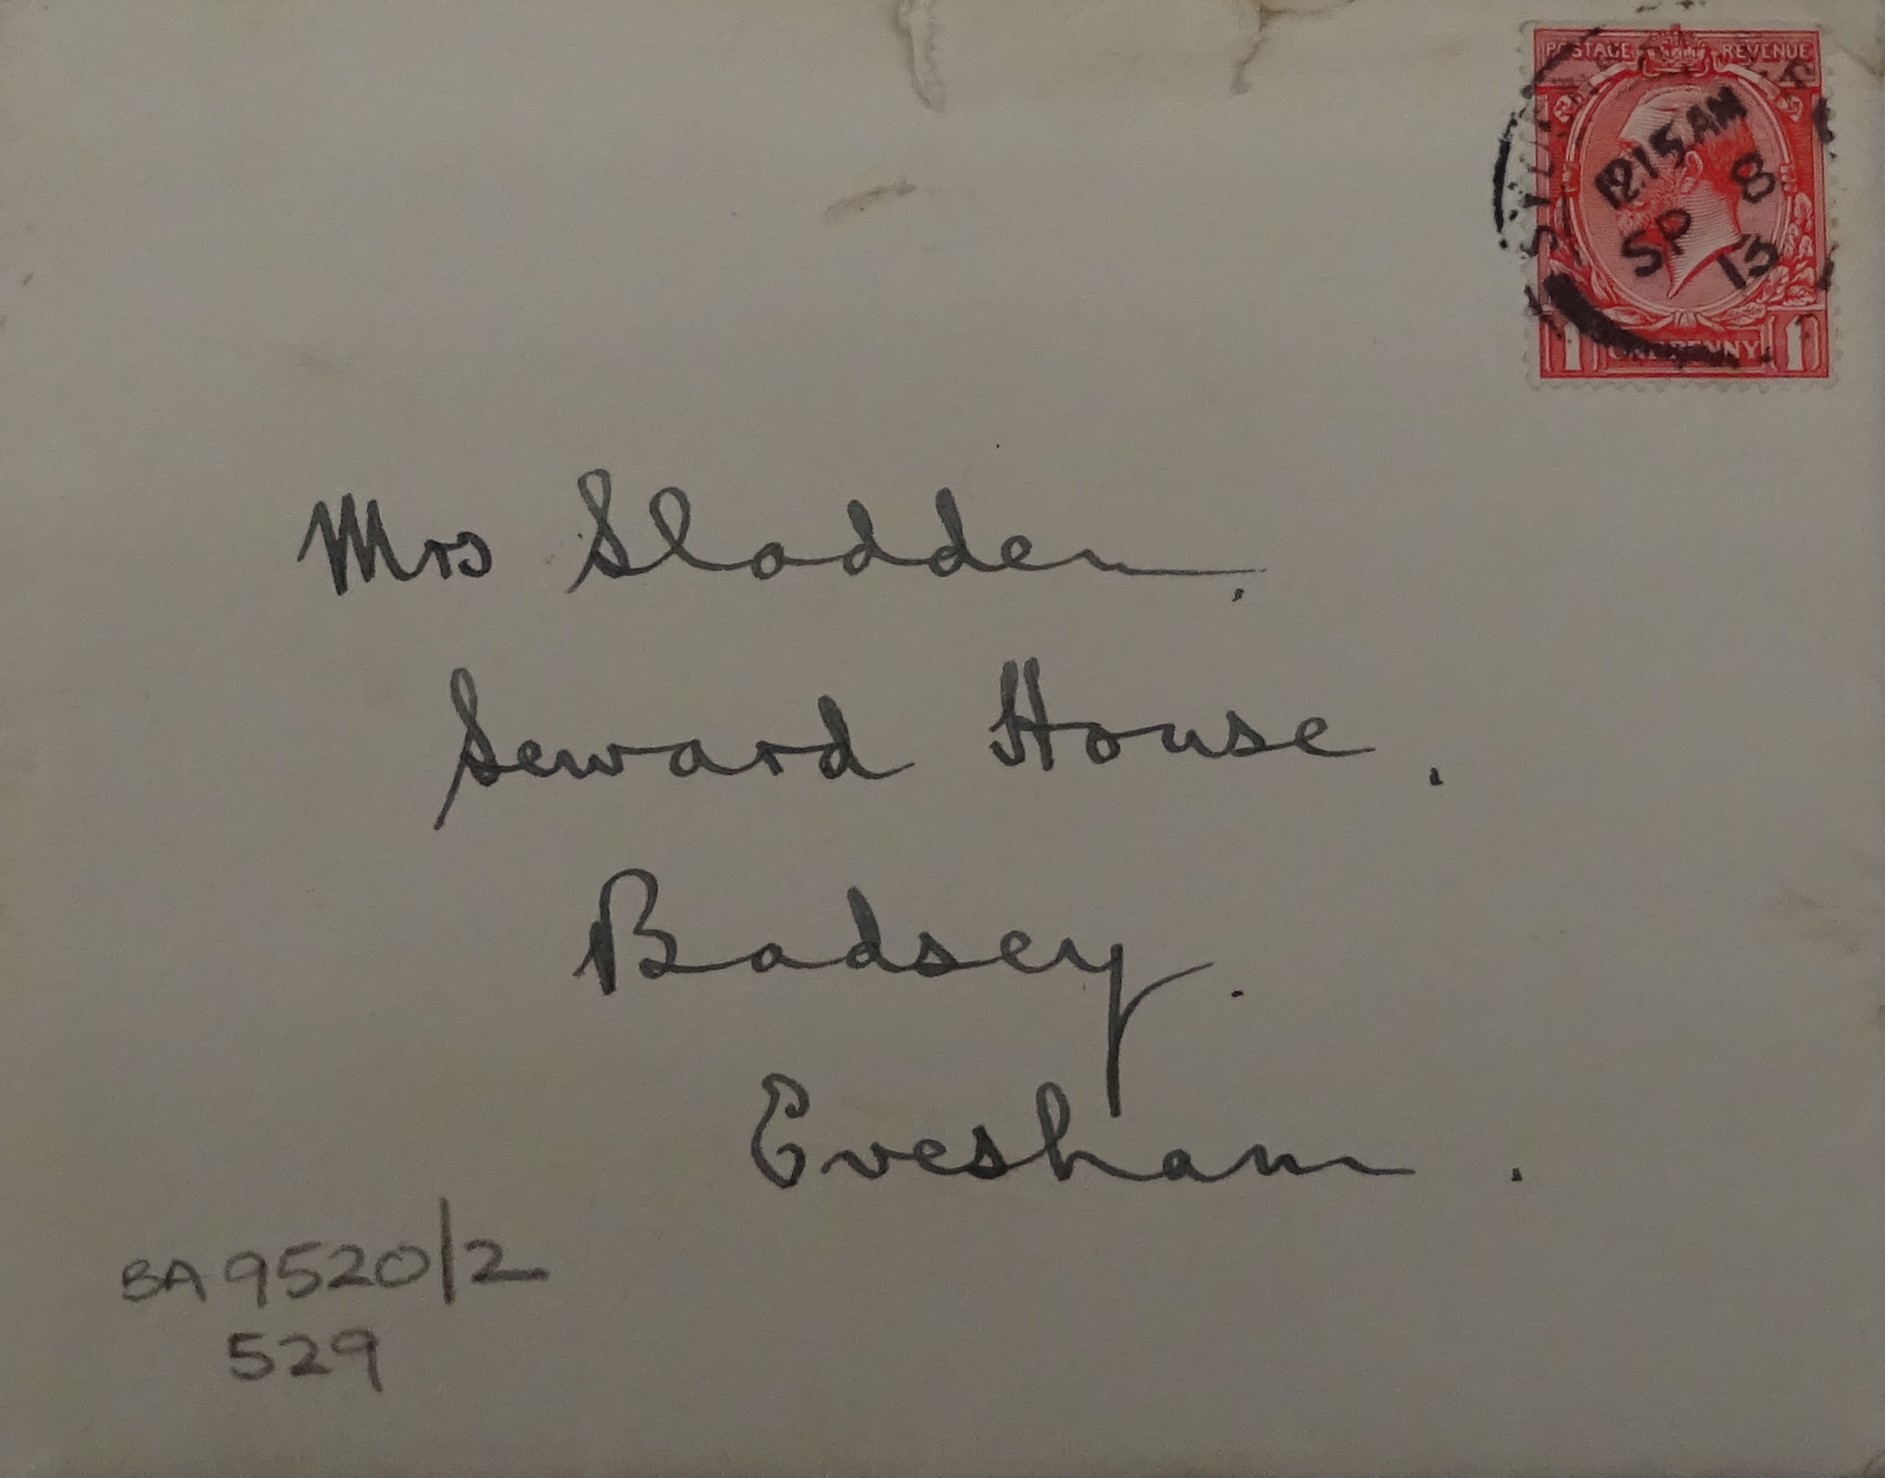 POSTAGE REVENUE
12 15 AM
SP 8
15
1 ONE PENNY 1
Mrs Sladden.
Seward House.
Badsey.
Evesham.
BA 9520/2
529